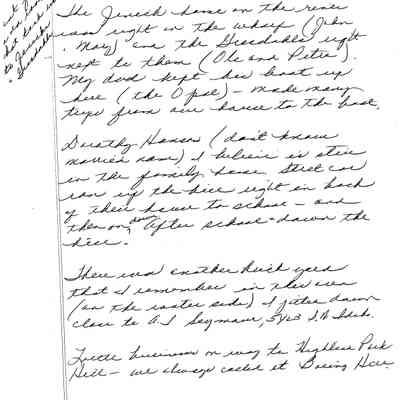 The Jewish house on the river
was right on the wharf (John
. May) and the Grosdahls right
next to them (Ole and Petra).
My dad kept his boat up
here (the Opal) – made many
trips from our house to the boat.
Dorothy Hansen (don't know
married name) I believe is still
in the family home. Street car
ran up the hill right in back
of their house to school – and
then on down After school – down the
hill.
There was another brick yard
that I remember in this area
(on the water side) I down
close to A.J. Seymour, S.W.
business on way to Highland Park
Hill – we always called it Boeing Hill.